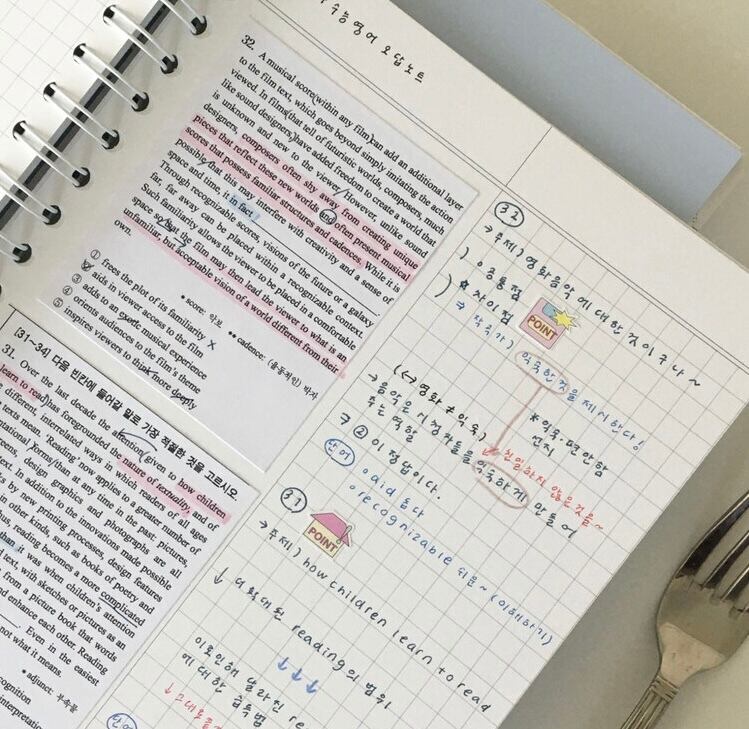 수능영어 오답노트
32. A musical score(within any film)can add an additional layer
to the film text, which goes beyond simply imitating the action
viewed. In films(that tell of futuristic worlds, composers, much
like sound designers,)have added freedom to create a world that
is unknown and new to the viewer./However, unlike sound
designers, composers often shy away from creating unique
pieces that reflect these new worlds and often present musical
scores that possess familiar structures and cadences. While it is
possible/that this may interfere with creativity and a sense of
space and time, it in fact
Through recognizable scores, visions of the future or a galaxy
far, far away can be placed within a recognizable context.
Such familiarity allows the viewer to be placed in a comfortable
space so that the film may then lead the viewer to what is an
unfamiliar, but acceptable vision of a world different from their
own.
• score: 악보 •• cadence: (율동적인) 박자
① frees the plot of its familiarity X
② aids in viewer access to the film
③ adds to an exotic musical experience
④ orients audiences to the film's theme
⑤ inspires viewers to think more deeply
[31~34] 다음 빈칸에 들어갈 말로 가장 적절한 것을 고르시오.
31. Over the last decade the attention(given to how children
learn to read)has foregrounded the nature of textuality, and of
different, interrelated ways in which readers of all ages
texts mean. 'Reading' now applies to a greater number of
forms/than at any time in the past: pictures,
design graphics and photographs are all
text. In addition to the innovations made possible
by new printing processes, design features
in other kinds, such as books of poetry and
reading becomes a more complicated
than it was when children's attention
text, with sketches or pictures as an
from a picture book that words
and enhance each other. Reading
. Even in the easiest
not what it means.
• adjunct: 부속물
32
→주제) 영화음악에 대한 것이구나~
) • 공통점
) ☆ 차이점
POINT
⇒ 작곡가) 익숙한 것을 제시한다!
* 익숙: 편안함
(↔영화 ≠ 익숙)
→음악은 시청자들을 익숙하게 만들어
주는 역할
구 ② 이 정답이다.
단어
◦ aid 돕다
◦ recognizable 쉬운~ (이해하기)
31
POINT
→주제) how children learn to read
↓ 어휘대된 reading의 범위!
↓↓↓
이로인해 달라진 re
에 대한 습득법
단어